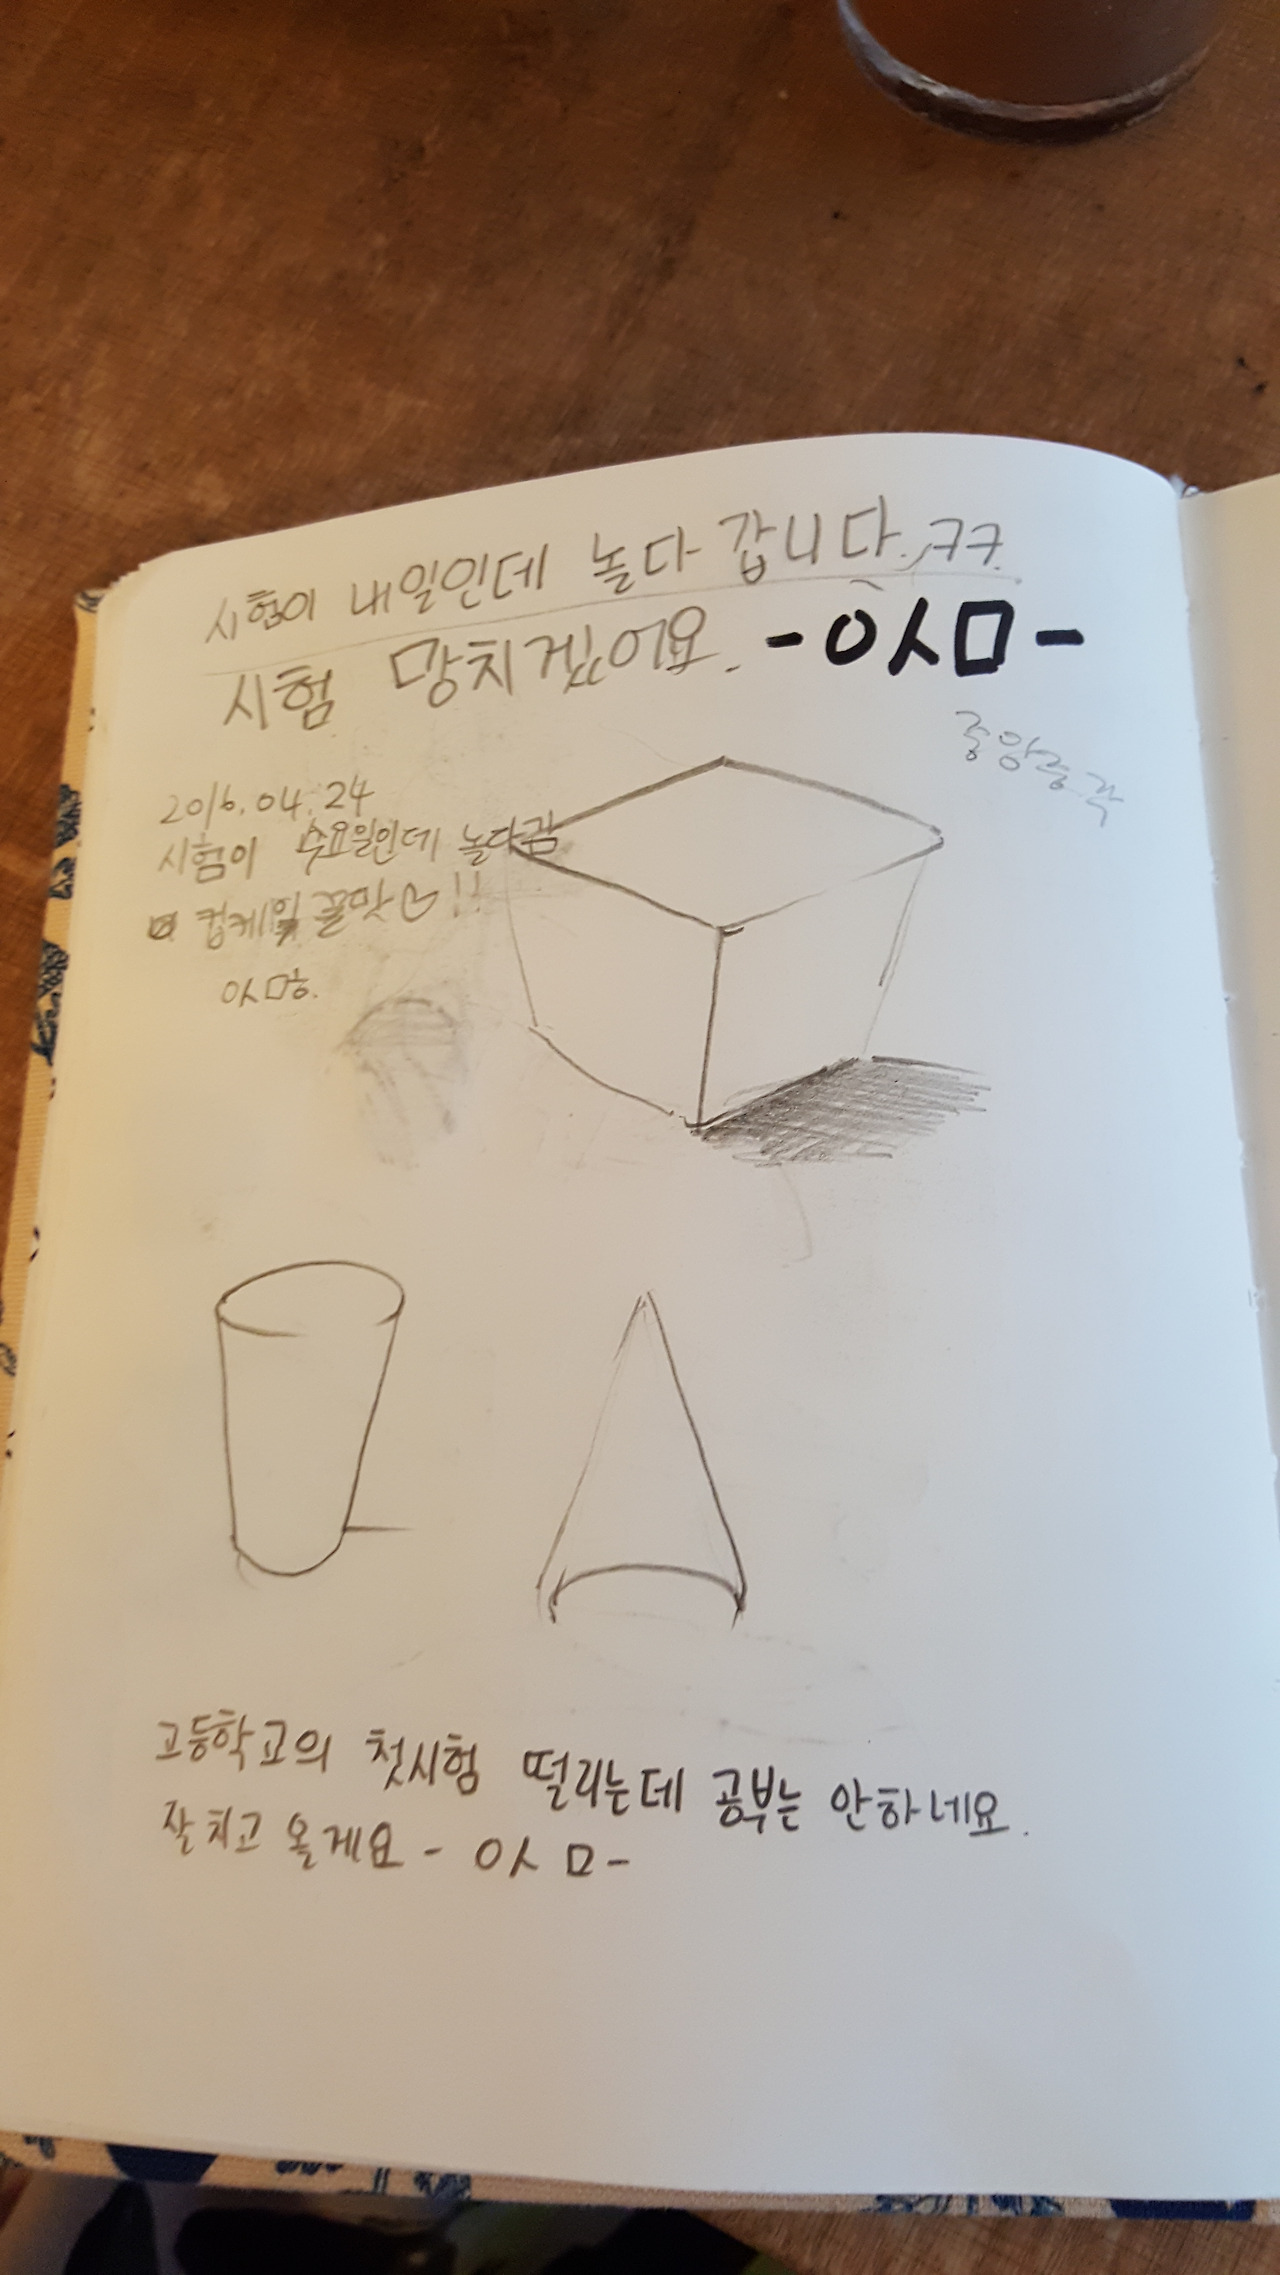 시험이 내일인데 놀다 갑니다.ㅋㅋ
시험 망치겠어요. -ㅇㅅㅁ-
2016.04.24
시험이 수요일인데 놀다감
컵케잌 꿀맛♡!!
ㅇㅅㅁㅎ.
고등학교의 첫시험 떨리는데 공부는 안하네요.
잘 치고 올게요 - ㅇㅅㅁ-